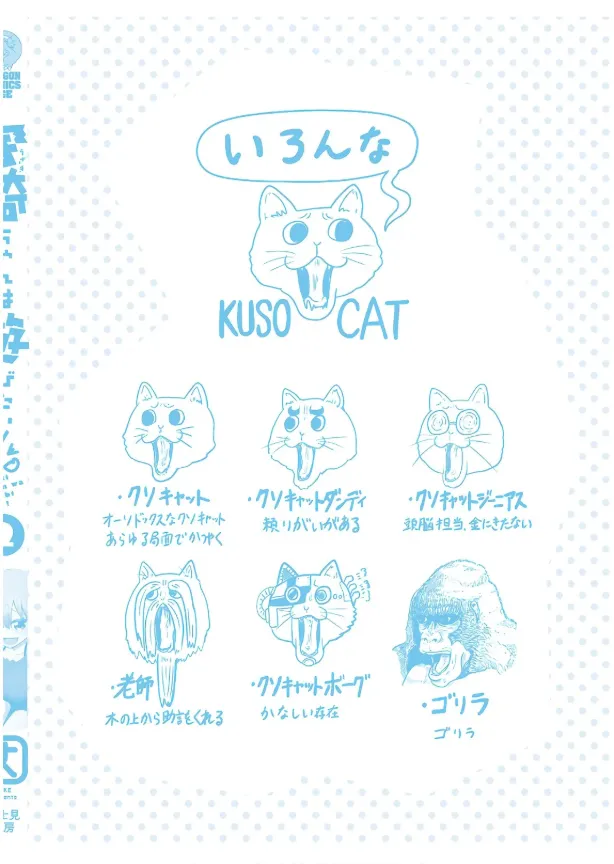 いろんな
KUSO CAT
・クソキャット
オーソドックスなクソキャット
あらゆる局面でかつやく
・クソキャットダンディ
頼りがいがある
・クソキャットジーニアス
頭脳担当、金にきたない
・老師
木の上から助言をくれる
・クソキャットボーグ
かなしい存在
・ゴリラ
ゴリラ